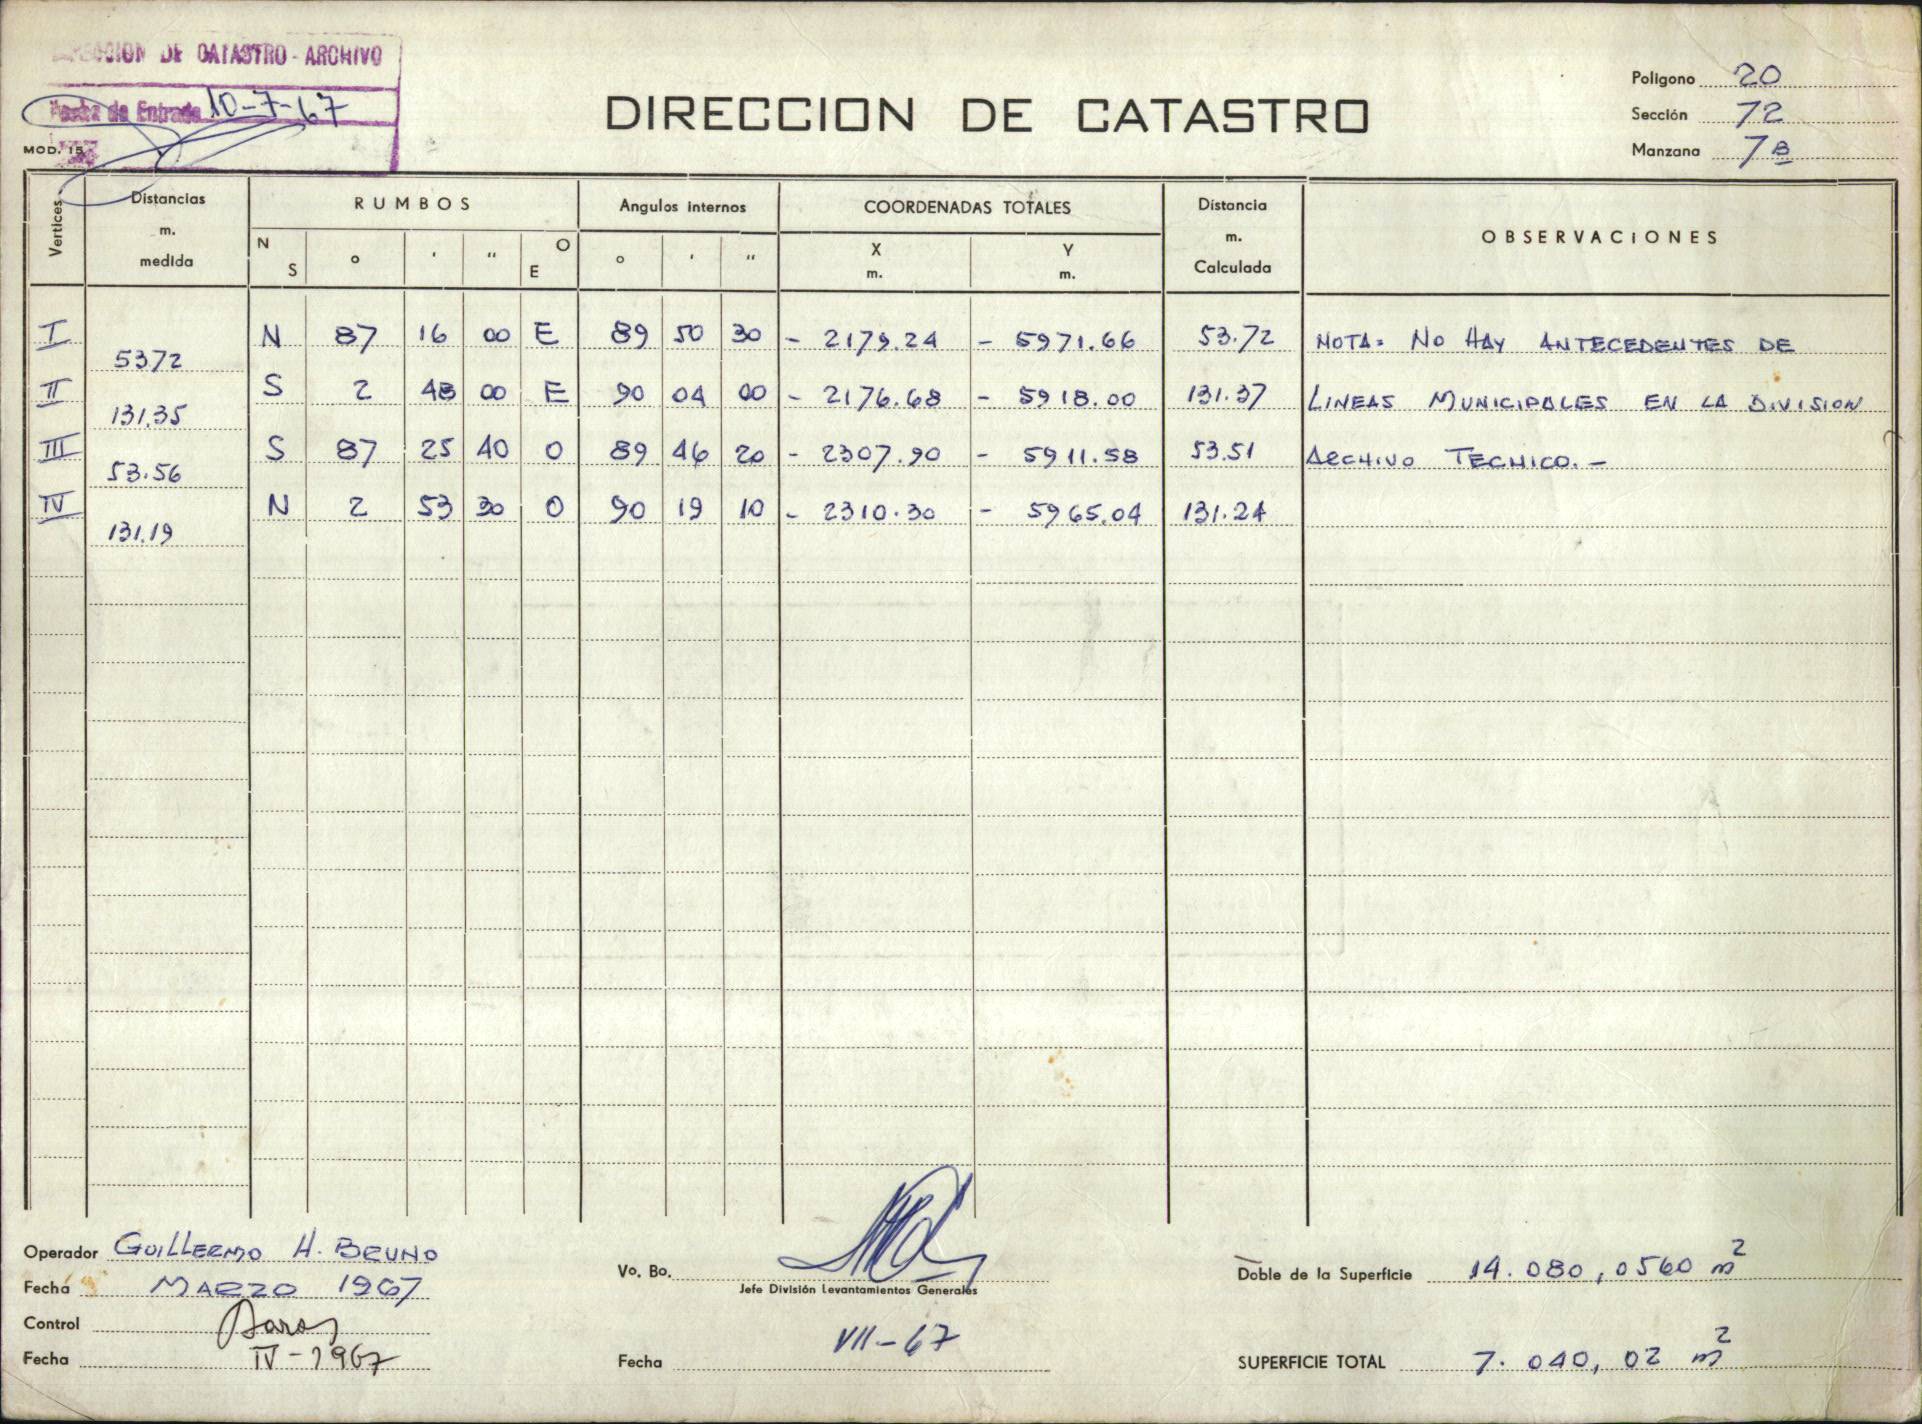 DIRECCION DE CATASTRO - ARCHIVO
Fecha de Entrada 10-7-67
MOD. 15
DIRECCION DE CATASTRO
Poligono 20
Sección 72
Manzana 7B
Vertices Distancias m. medida RUMBOS Angulos internos COORDENADAS TOTALES Distancia m. Calculada OBSERVACIONES
N S ° ' " O E ° ' " X m. Y m.
I N 87 16 00 E 89 50 30 - 2179.24 - 5971.66 53.72 NOTA: NO HAY ANTECEDENTES DE
5372
II S 2 48 00 E 90 04 00 - 2176.68 - 5918.00 131.37 LINEAS MUNICIPALES EN LA DIVISION
131.35
III S 87 25 40 O 89 46 20 - 2307.90 - 5911.58 53.51 ARCHIVO TECNICO.-
53.56
IV N 2 53 30 O 90 19 10 - 2310.30 - 5965.04 131.24
131.19
Operador GUILLERMO H. BRUNO
Fecha MARZO 1967
Control
Fecha IV-1967
Vo. Bo.
Jefe División Levantamientos Generales
Fecha VII-67
Doble de la Superficie 14.080,0560 m2
SUPERFICIE TOTAL 7.040,02 m2